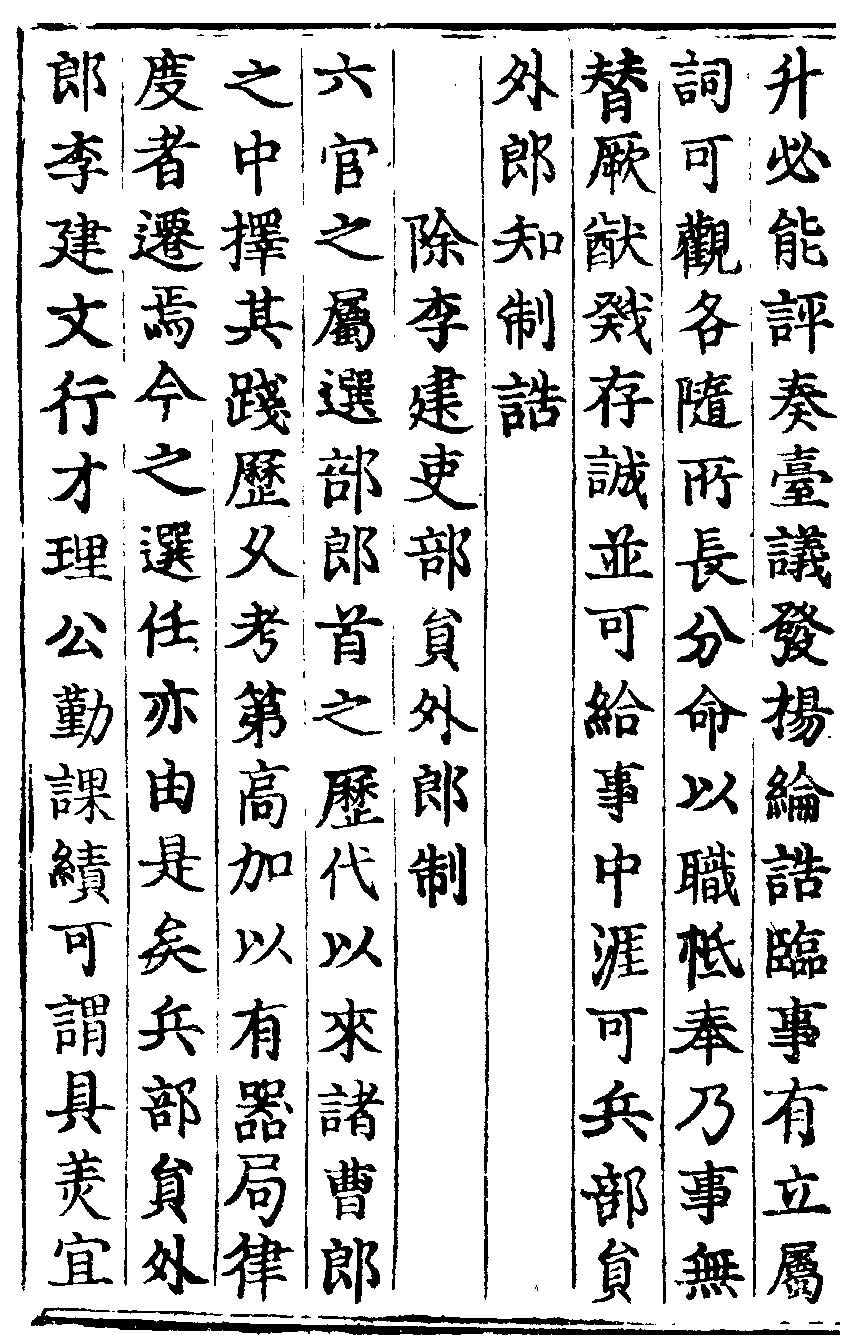 升必能評奏臺議發揚綸誥臨事有立屬
詞可觀各隨所長分命以職柢奉乃事無
替厥猷戣存誠並可給事中涯可兵部貟
外郎知制誥
除李建吏部貟外郎制
六官之屬選部郎首之歷代以來諸曹郎
之中擇其踐歷乆考第高加以有器局律
度者遷焉今之選任亦由是矣兵部貟外
郎李建文行才理公勤課績可謂具羙宜